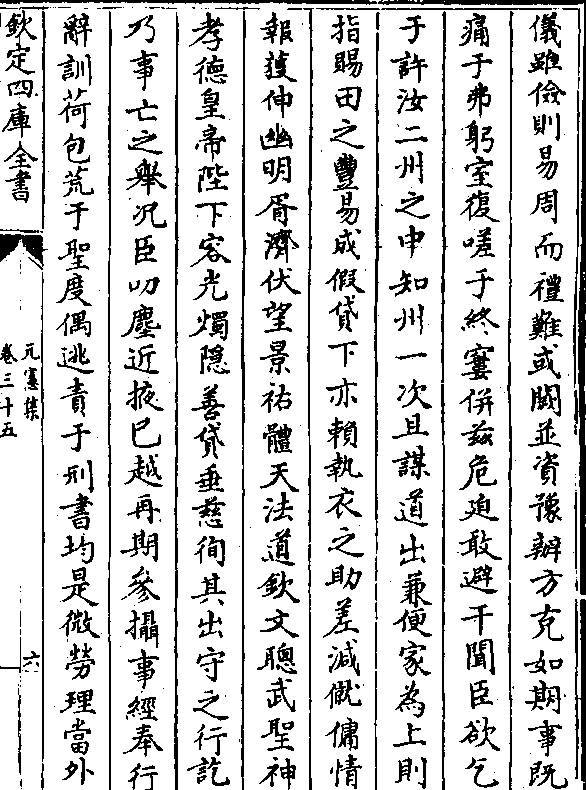 儀雖儉則易周而禮難或闕並資豫辦方克如期事既
痛于弗躬室復嗟于終窶併兹危迫敢避干聞臣欲乞
于許汝二州之中知州一次且謀道出兼便家為上則
指賜田之豐易成假貸下亦賴執衣之助差減僦傭情
報獲伸幽明胥濟伏望景祐體天法道欽文聰武聖神
孝德皇帝陛下容光燭隠善貸垂慈徇其出守之行訖
乃事亡之舉况臣叨塵近掖已越再期參攝事經奉行
辭訓荷包荒于聖度偶逃責于刑書均是微勞理當外
欽定四庫全書
元憲集
卷三十五
六